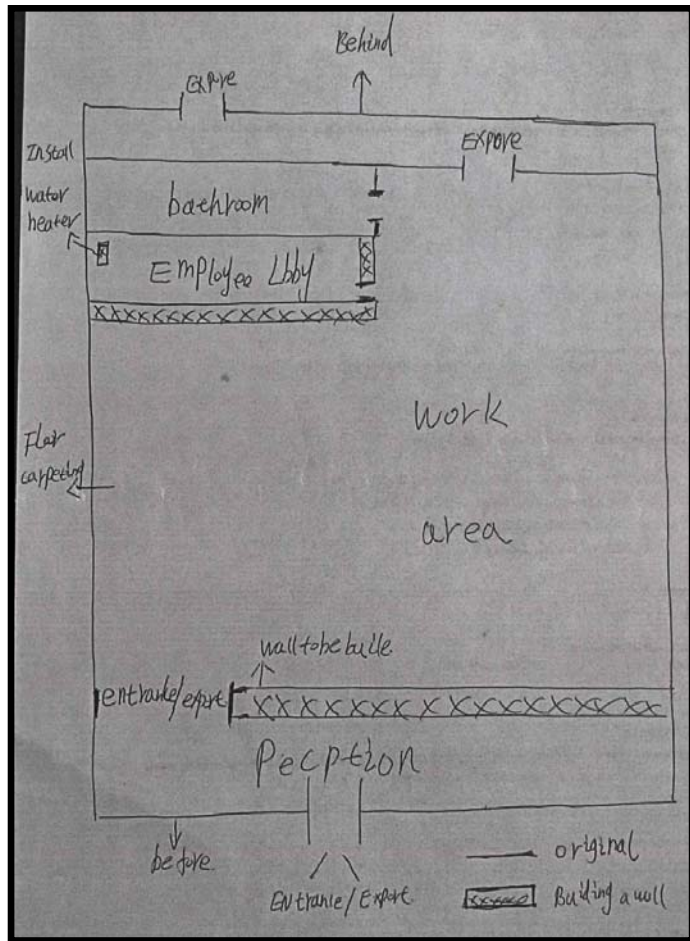 Behind
Expre
Expore
Install
water
heater
bathroom
Employee Lbby
work
area
Floor
carpeting
wall to be buile
entrance/export
Pecption
before
Entranle/Export
original
Building a woll